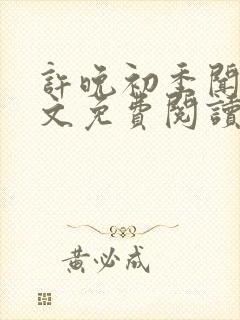 許晚初季聞
文免費閱讀
黃必成